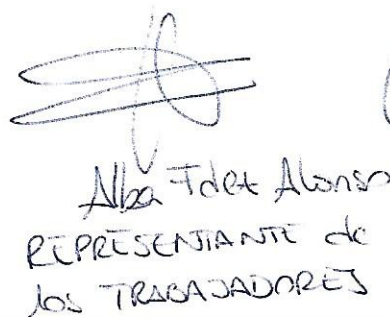 Alba Fdez Alonso
REPRESENTANTE de
los TRABAJADORES